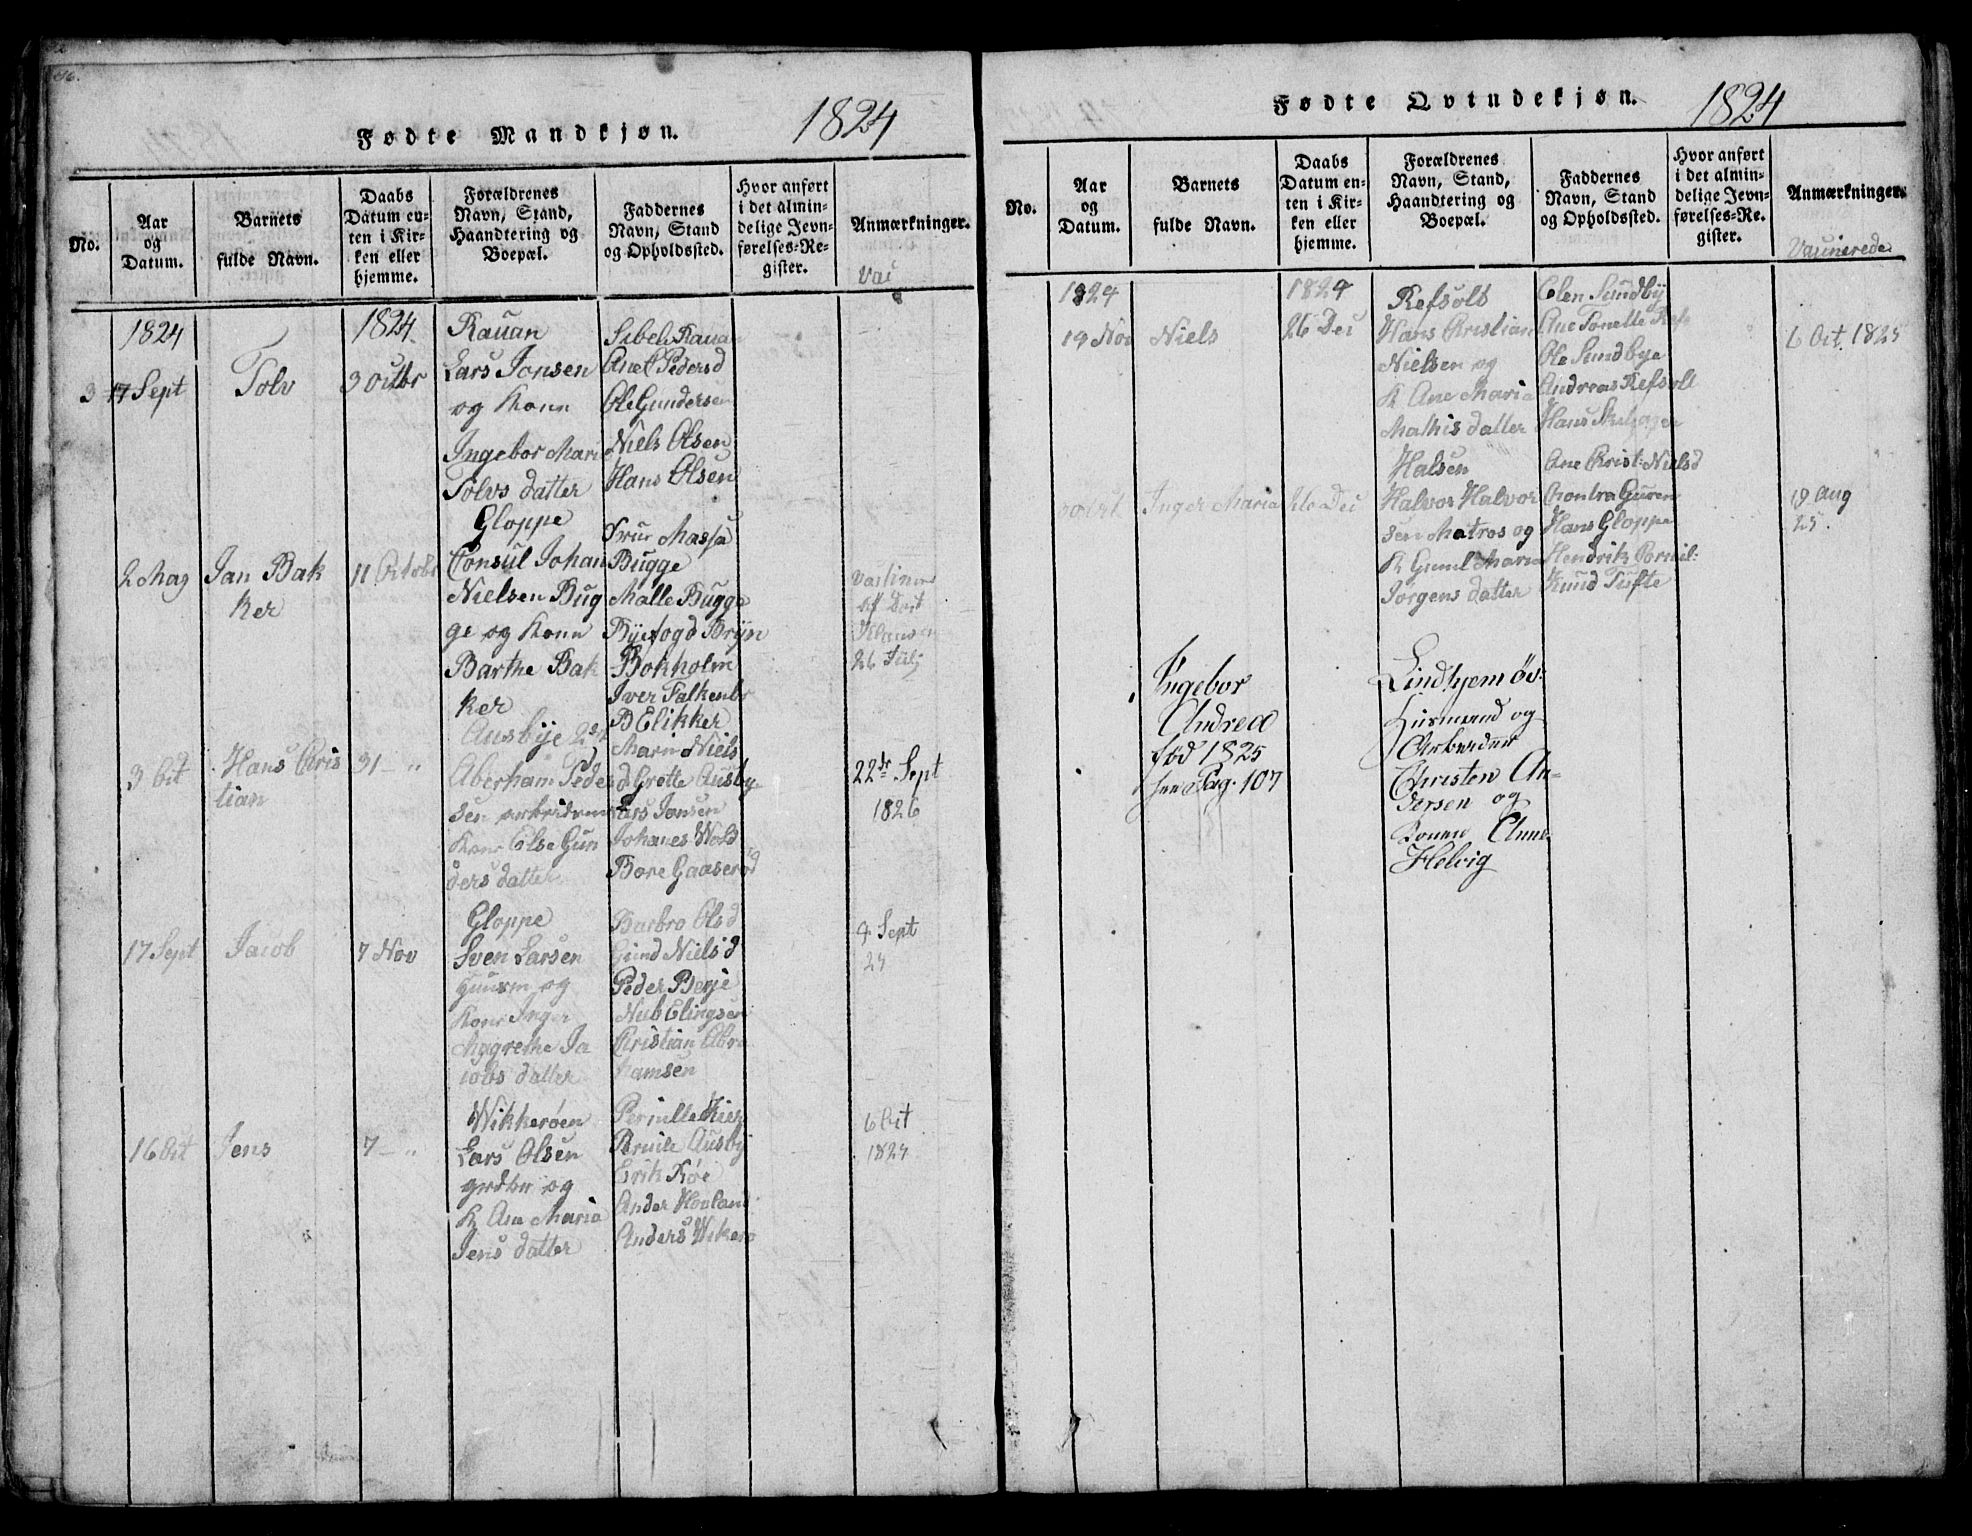 Fødte Mandkjøn. 1824
No.
Aar og Datum.
Barnets fulde Navn.
Daabs Datum enten i Kirken eller hjemme.
Forældrenes Navn, Stand, Haandtering og Boepæl.
Faddernes Navn, Stand og Opholdssted.
Hvor anført i det almindelige Jevnførelses-Register.
Anmærkninger.
Vac
1824
1824
3
17 Sept
Tolv
3 Octbr
Rauan
Lars Jonsen
og Konn
Ingebor Mari
Tolvs datter
Sibele Rauan
Anel Pedersd
Ole Gundersen
Niels Olsen
Hans Olsen
2 May
Jan Bak
ker
11 Octobr
Gloppe
Consul Johan
Nielsen Bug
ge og Konn
Barthe Bak
ker
Frur Massa
Bugge
Malle Bugge
Byefogd Bryn
Bokholm
Iver Falkenbr
B Elikker
26 July
3 Oct
Hans Cris
tian
31 - "
Ausbye
Aberham Peder
sen
Kone Else Gun
ders datter
Marin Niels
d Grette Ausbye
Lars Jansen
Johanes Wold
Bore Gaaserød
22de Sept
1826
17 Sept
Jacob
7 Nov
Gloppe
Sven Larsen
og
Kone Inger
Magrethe Ja
cobs datter
Barbro Olsd
Gund Nielsd
Peder Berje
Nub Elingsen
Christian Abra
hamsen
Sept
16 Oct
Jens
7 - "
Wikkerøen
Lars Olsen
og
K Ane Maria
Jens datter
Ausby
Erik Røe
Ander Hovland
Anders Wikerø
6 Oct
Fødte Qvindekjøn. 1824
No.
Aar og Datum.
Barnets fulde Navn.
Daabs Datum enten i Kirken eller hjemme.
Forældrenes Navn, Stand, Haandtering og Boepæl.
Faddernes Navn, Stand og Opholdssted.
Hvor anført i det almindelige Jevnførelses-Register.
Anmærkninger.
Vaxinerede
1824
1824
19 Nov
Niels
26 Dec
Refsolt
Hans Cristian
Nielsen og
K Ane Maria
Mathis datter
Olen Sundby
Ane Tonette Refs
Ole Sundbye
Andreas Refsolt
6 Oct. 1825
Inger Maria
26 Dec
Halsen
Halvor Halvor
sen Matros og
K Gunil Maria
Jørgens datter
Ane Crist: Nielsd
Hans Gloppe
Hendrik
Knud Tufte
19 Aug
25.
Ingebor
Andrea
fød 1825
see Pag. 107
Lindhjem øs:
Huusmand og
Arbeider
Christen An-
dersen og
Konen Anne
Helvig